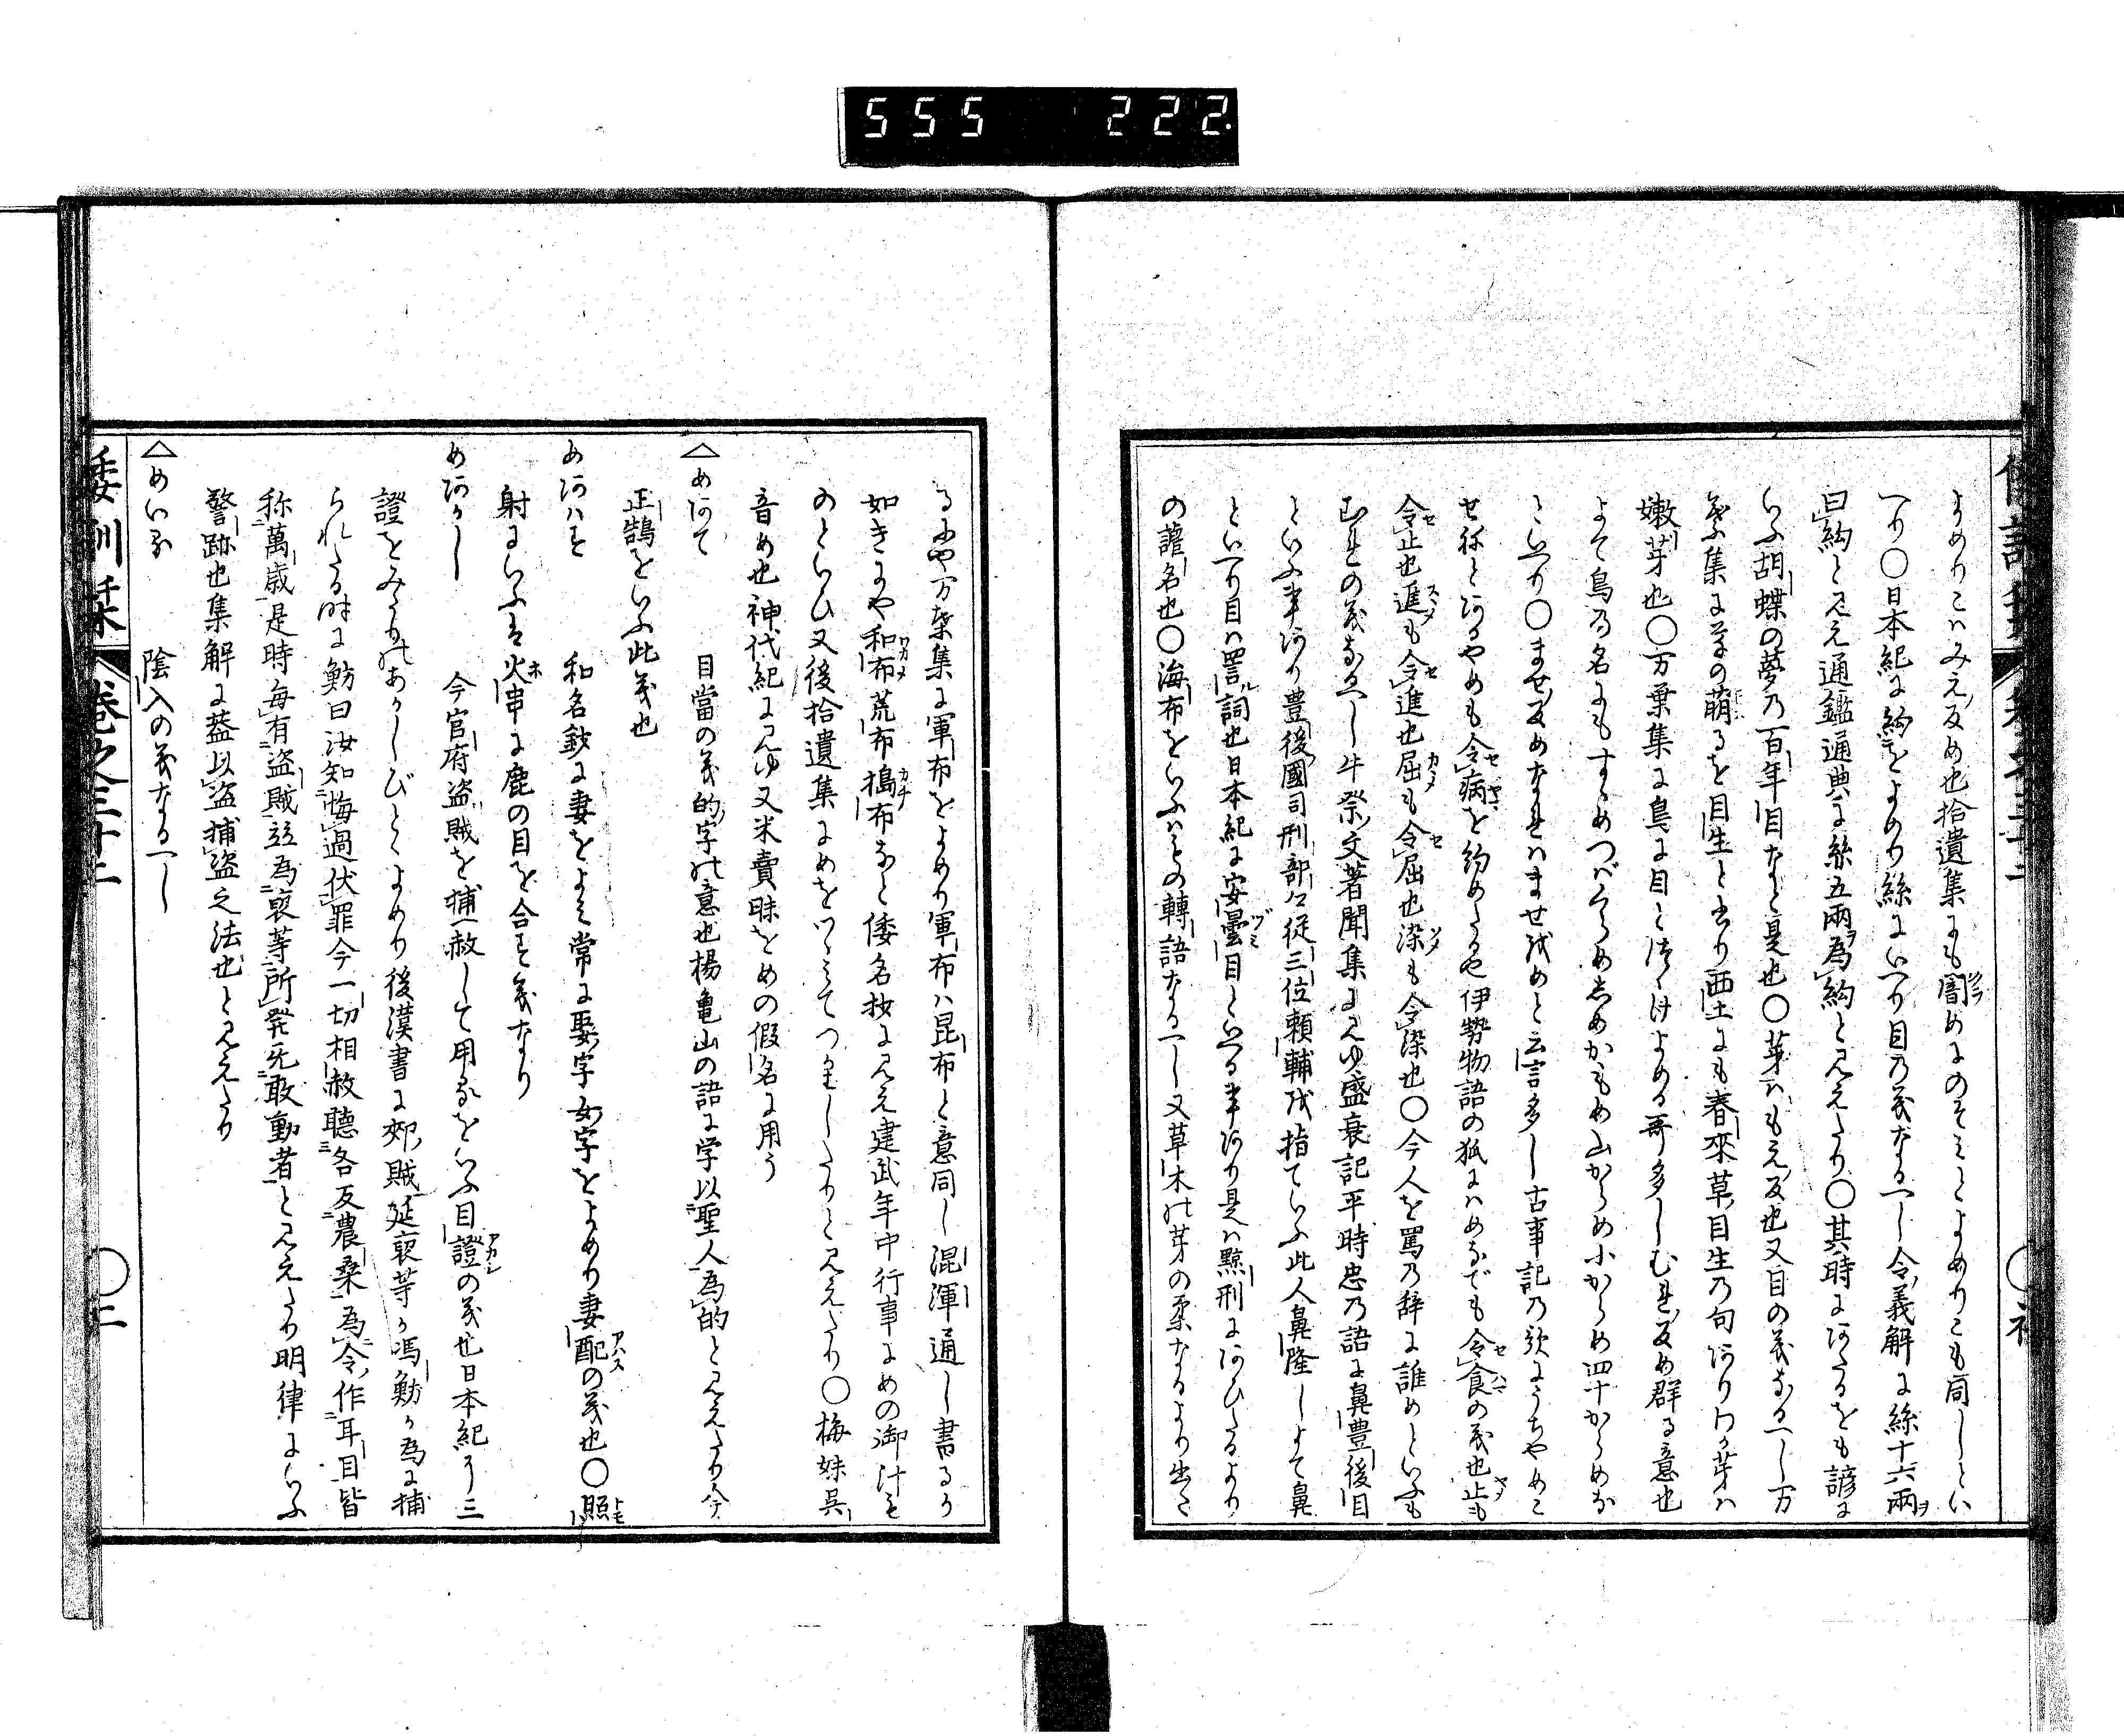 555 222
よめりこハみえ反め也拾遺集にも闇めにのそミとよめりこも同しとい
へり○日本紀に絢をよめり絲にいへり目の義なるへし令義解に絲十六兩ヲ
曰絇と見え通鑑通典に絲五兩ヲ為絇と見えたり○其時にあたるをも諺に
いふ胡蝶の夢乃百年目なと是也○芽ハもえ反也又目の義なるへし万
葉集に草の萌るを目生と書り西土にも春來草目生乃句ありわか芽ハ
嫩芽也○万葉集に鳥に目とつけよめる哥多しむれ反め群る意也
よて鳥乃名にもすゝめつばくらめ志めかもめ山からめ小からめ四十からめな
といへり○ませ反めなれハませ找めと云言多し古事記乃歌にうちやめこ
せねとあるやめも令病を約めたるや伊勢物語の狐にハめなでも令食の義也止も
令止也進も令進也屈も令屈也染も令染也○今人を罵乃辞に誰めといふも
むれの義なるへし牛祭文著聞集に見ゆ盛衰記平時忠乃語に鼻豊後目
といふ事あり豊後國司刑部卿從三位頼輔找指ていふ此人鼻隆しよて鼻
といへり目ハ詈詞也日本紀に安曇目といへる事あり是ハ黥刑にあひたるより
の謔名也○海布をいふハもの轉語なるへし又草木の芽の柔なるより出た
るにや万葉集に軍布をよめり軍布ハ昆布と意同し混渾通し書るか
如きにや和布荒布搗布なと倭名抄に見え建武年中行事にめの御汁を
のといひ又後拾遺集にめをつゝミてつかはしたりと見えたり○梅妹呉
音め也神代紀に見ゆ又米賣昧をめの假名に用う
△めあて 目當の義的字の意也楊亀山の語に学以聖人為的と見えたり今
正鵠をいふ此義也
めあハせ 和名鈔に妻をよミ常に娶字女字をよめり妻配の義也○照
射にいふハ火串に鹿の目を合せ義なり
めあかし 今官府盗賊を捕へ赦して用るをいふ目證の義也日本紀に
證をみたりのあかしびとゝよめり後漢書に郟賊延裒等か馮魴か為に捕
られたる時に魴曰汝知悔過伏罪今一切相赦聴各反農桑為令作耳目皆
称萬歳是時毎有盗賊竝為裒等所発旡敢動者と見えたり明律にいふ
警跡也集解に葢以盗捕盗之法也と見えたり
△めいる 陰入の義なるへし
倭訓栞 巻之三十二 ○二